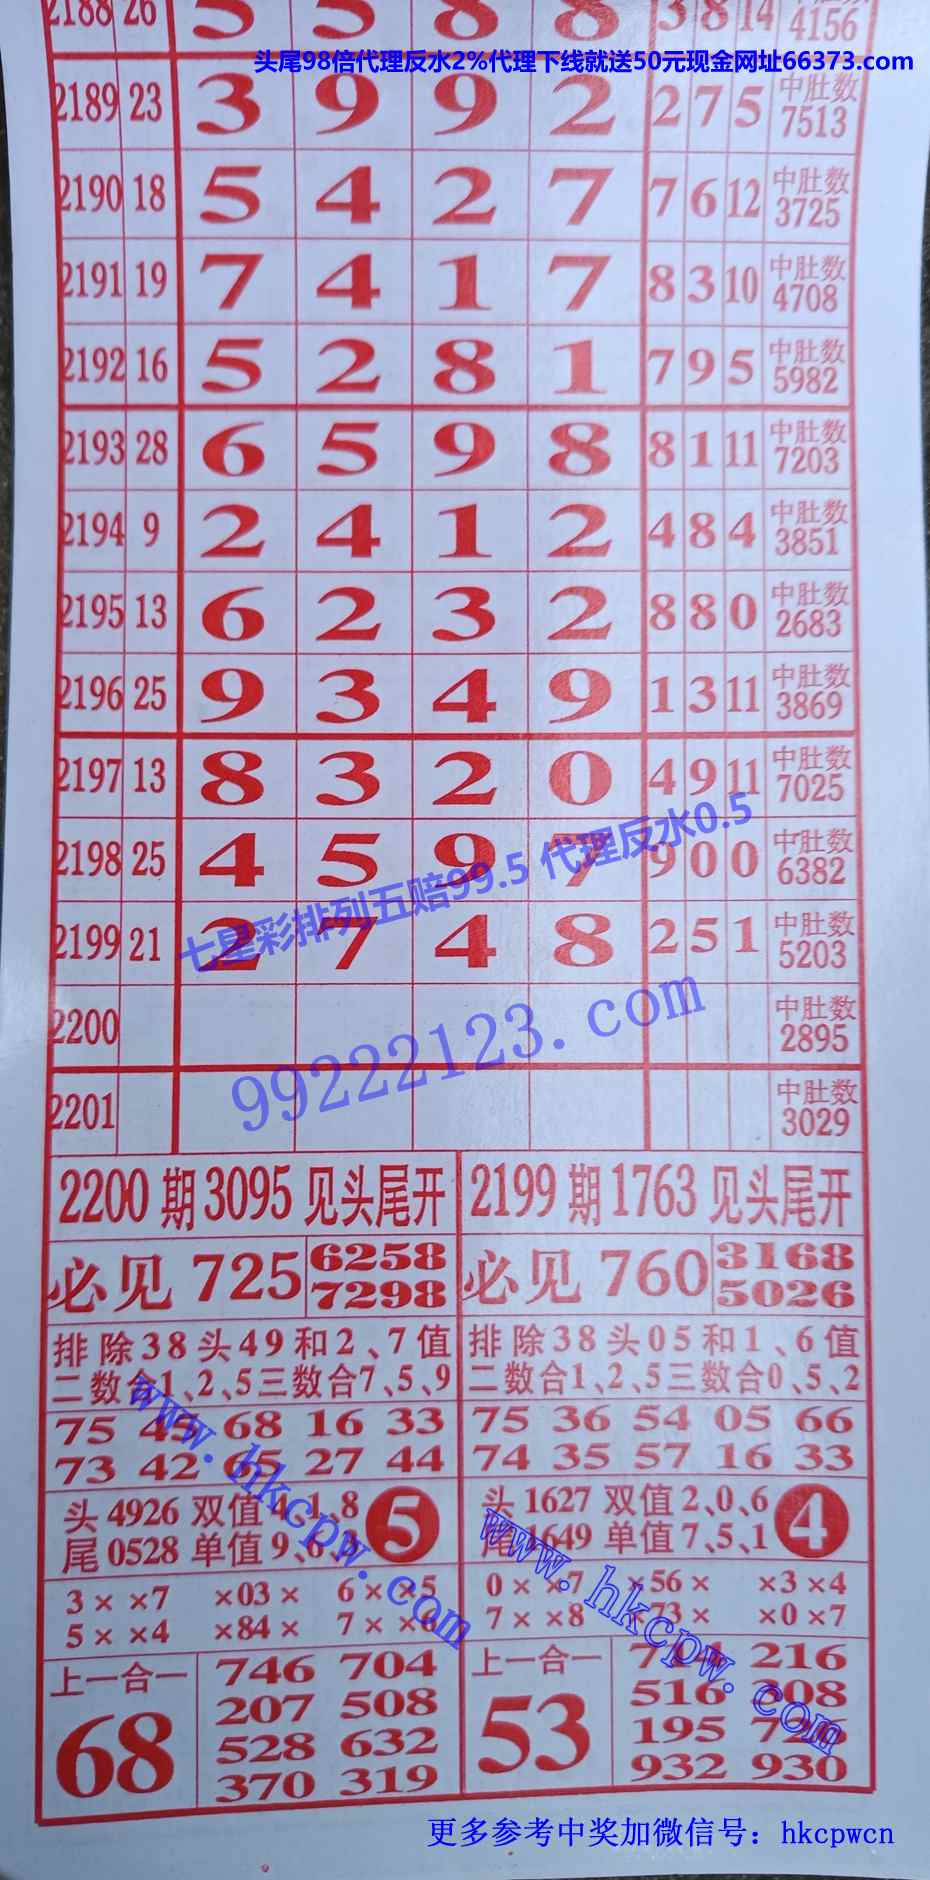 2188 26 5 5 8 8 3 8 14 中肚数 4156
头尾98倍代理反水2%代理下线就送50元现金网址66373.com
2189 23 3 9 9 2 2 7 5 中肚数 7513
2190 18 5 4 2 7 7 6 12 中肚数 3725
2191 19 7 4 1 7 8 3 10 中肚数 4708
2192 16 5 2 8 1 7 9 5 中肚数 5982
2193 28 6 5 9 8 8 1 11 中肚数 7203
2194 9 2 4 1 2 4 8 4 中肚数 3851
2195 13 6 2 3 2 8 8 0 中肚数 2683
2196 25 9 3 4 9 1 3 11 中肚数 3869
2197 13 8 3 2 0 4 9 11 中肚数 7025
2198 25 4 5 9 7 9 0 0 中肚数 6382
七星彩排列五赔99.5 代理反水0.5
2199 21 2 7 4 8 2 5 1 中肚数 5203
2200 中肚数 2895
99222123.com
2201 中肚数 3029
2200期3095见头尾开
必见 725 6258
7298
排除38头49和2、7值
二数合1、2、5三数合7、5、9
75 45 68 16 33
73 42 65 27 44
头4926 双值4、1、8
尾0528 单值9、6、
5
3××7 ×03× 6××5
5××4 ×84× 7××6
上一合一
68
746 704
207 508
528 632
370 319
2199期1763见头尾开
必见 760 3168
5026
排除38头05和1、6值
二数合1、2、5三数合0、5、2
75 36 54 05 66
74 35 57 16 33
头1627 双值2、0、6
尾1649 单值7、5、1
4
0××7 ×56× ××3×4
7××8 ×73× ××0×7
上一合一
53
714 216
516 308
195 726
932 930
www.hkcpw.com
www.hkcpw.com
更多参考中奖加微信号：hkcpwcn